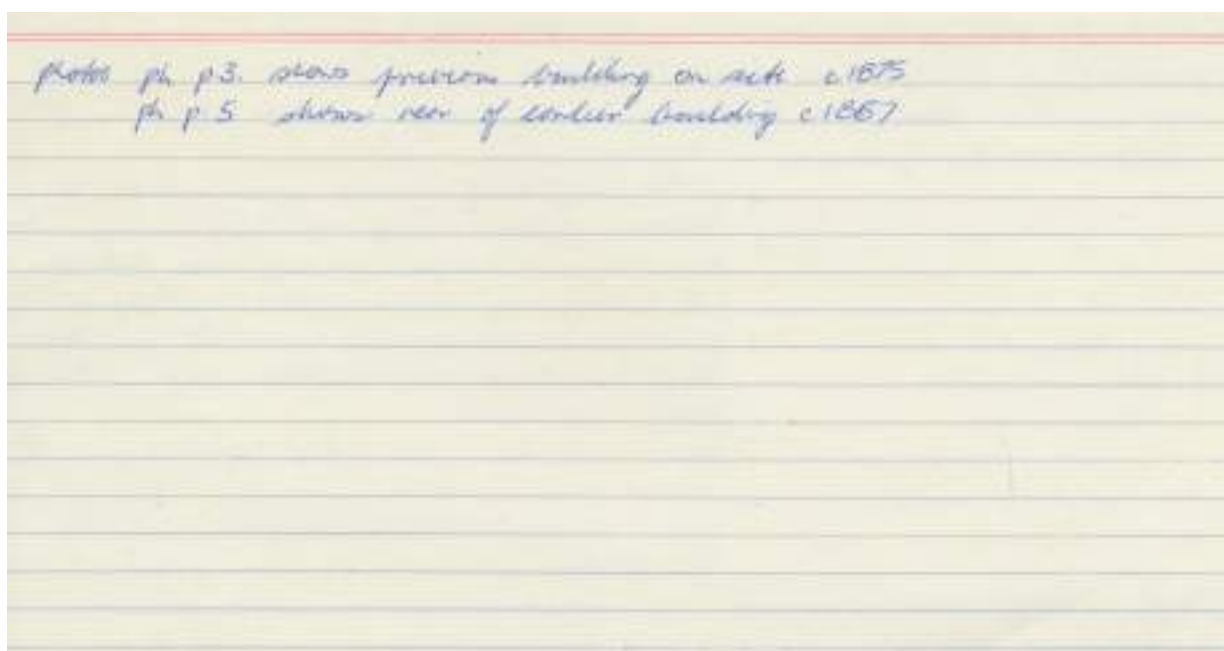 photos ph p3. shows previous building on site c.1875
ph p.5 shows rear of earlier building c.1867